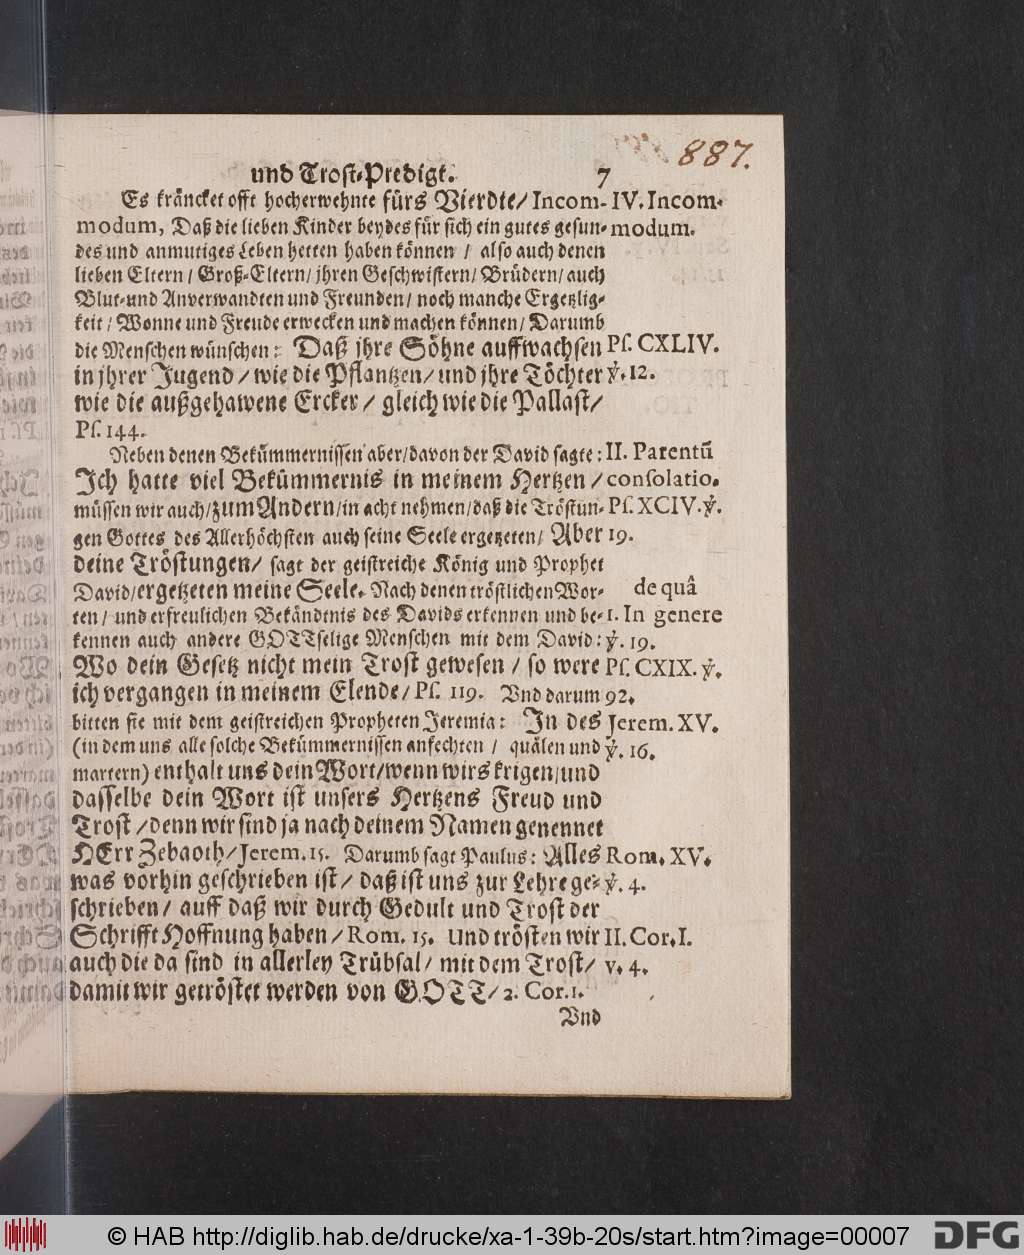 887.
und Trost-Predigt. 7
Es kräncket offt hocherwehnte fürs Vierdte/ Incom-
modum, Daß die lieben Kinder beydes für sich ein gutes gesun-
des und anmutiges Leben hetten haben können / also auch denen
lieben Eltern/ Groß-Eltern/ jhren Geschwistern/ Brüdern/ auch
Blut-und Anverwandten und Freunden/ noch manche Ergetzlig-
keit / Wonne und Freude erwecken und machen können/ Darumb
die Menschen wünschen: Daß jhre Söhne auffwachsen
in jhrer Jugend / wie die Pflantzen/ und jhre Töchter
wie die außgehawene Ercker / gleich wie die Pallast/
Ps. 144.
Neben denen Bekümmernissen aber/davon der David sagte:
Ich hatte viel Bekümmernis in meinem Hertzen /
müssen wir auch/zum Andern/in acht nehmen/daß die Tröstun-
gen Gottes des Allerhöchsten auch seine Seele ergetzeten/ Aber
deine Tröstungen/ sagt der geistreiche König und Prophet
David/ergetzeten meine Seele. Nach denen tröstlichen Wor-
ten/ und erfreulichen Bekändtnis des Davids erkennen und be-
kennen auch andere GOTTselige Menschen mit dem David:
Wo dein Gesetz nicht mein Trost gewesen / so were
ich vergangen in meinem Elende/ Ps. 119. Vnd darum
bitten sie mit dem geistreichen Propheten Jeremia: In des
(in dem uns alle solche Bekümmernissen anfechten / quälen und
martern) enthalt uns dein Wort/wenn wirs krigen/und
dasselbe dein Wort ist unsers Hertzens Freud und
Trost /denn wir sind ja nach deinem Namen genennet
HErr Zebaoth/Jerem. 15. Darumb sagt Paulus: Alles
was vorhin geschrieben ist/ daß ist uns zur Lehre ge-
schrieben/ auff daß wir durch Gedult und Trost der
Schrifft Hoffnung haben /Rom. 15. Und trösten wir
auch die da sind in allerley Trübsal/ mit dem Trost/
damit wir getröstet werden von GOTT/ 2. Cor. 1.
Vnd
IV. Incom-
modum.
Ps. CXLIV.
℣. 12.
II. Parentũ
consolatio.
Ps. XCIV. ℣.
19.
de quâ
1. In genere
℣. 19.
Ps. CXIX. ℣.
92.
Jerem. XV.
℣. 16.
Rom. XV.
℣. 4.
II. Cor. I.
v. 4.
© HAB http://diglib.hab.de/drucke/xa-1-39b-20s/start.htm?image=00007
DFG